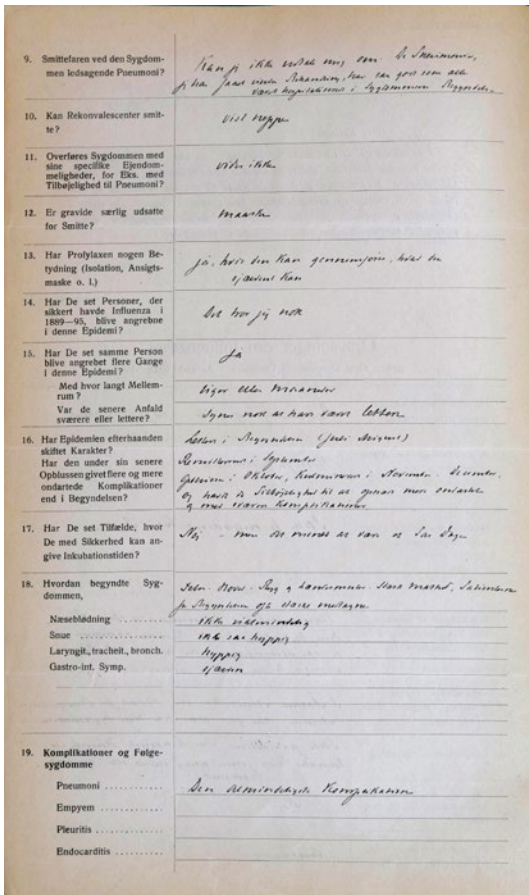 9. Smittefaren ved den Sygdom-
men ledsagende Pneumoni?
Kan jeg ikke udtale mig om. De Pneumonier,
jeg har faaet under Behandling, har saa godt som alle
været hospitaliserede i Sygdommens Begyndelse
10. Kan Rekonvalescenter smit-
te?
vist neppe
11. Overføres Sygdommen med
sine specifike Ejendom-
meligheder, for Eks. med
Tilbøjelighed til Pneumoni?
vides ikke
12. Er gravide særlig udsatte
for Smitte?
maaske
13. Har Profylaxen nogen Be-
tydning (Isolation, Ansigts-
maske o. l.)
Ja, hvis den kan gennemføres, hvad den
sjældent kan
14. Har De set Personer, der
sikkert havde Influenza i
1889—95, blive angrebne
i denne Epidemi?
Det tror jeg nok
15. Har De set samme Person
blive angrebet flere Gange
i denne Epidemi?
Ja
Med hvor langt Mellem-
rum?
Uger eller Maaneder
Var de senere Anfald
sværere eller lettere?
Synes nok at have været lettere
16. Har Epidemien efterhaanden
skiftet Karakter?
Har den under sin senere
Opblussen givet flere og mere
ondartede Komplikationer
end i Begyndelsen?
Lettere i Begyndelsen (Juli August)
i September
i Oktober, i November - December
og havde da Tilbøjelighed til at optræde mere ondartet
og med sværere Komplikationer
17. Har De set Tilfælde, hvor
De med Sikkerhed kan an-
give Inkubationstiden?
Nej - men det meneds at være et Par Dage
18. Hvordan begyndte Syg-
dommen,
Feber - Hoved - Ryg og Lændesmerter. Stærk Mathed,
fra Begyndelsen ofte stærkt medtagne
Næseblødning ............
ikke ualmindelig
Snue ................
ikke saa hyppig
Laryngit., tracheit., bronch.
hyppig
Gastro-int. Symp.
sjælden
19. Komplikationer og Følge-
sygdomme
Pneumoni ............
Den almindeligste Komplikation
Empyem .............
Pleuritis .............
Endocarditis ..........